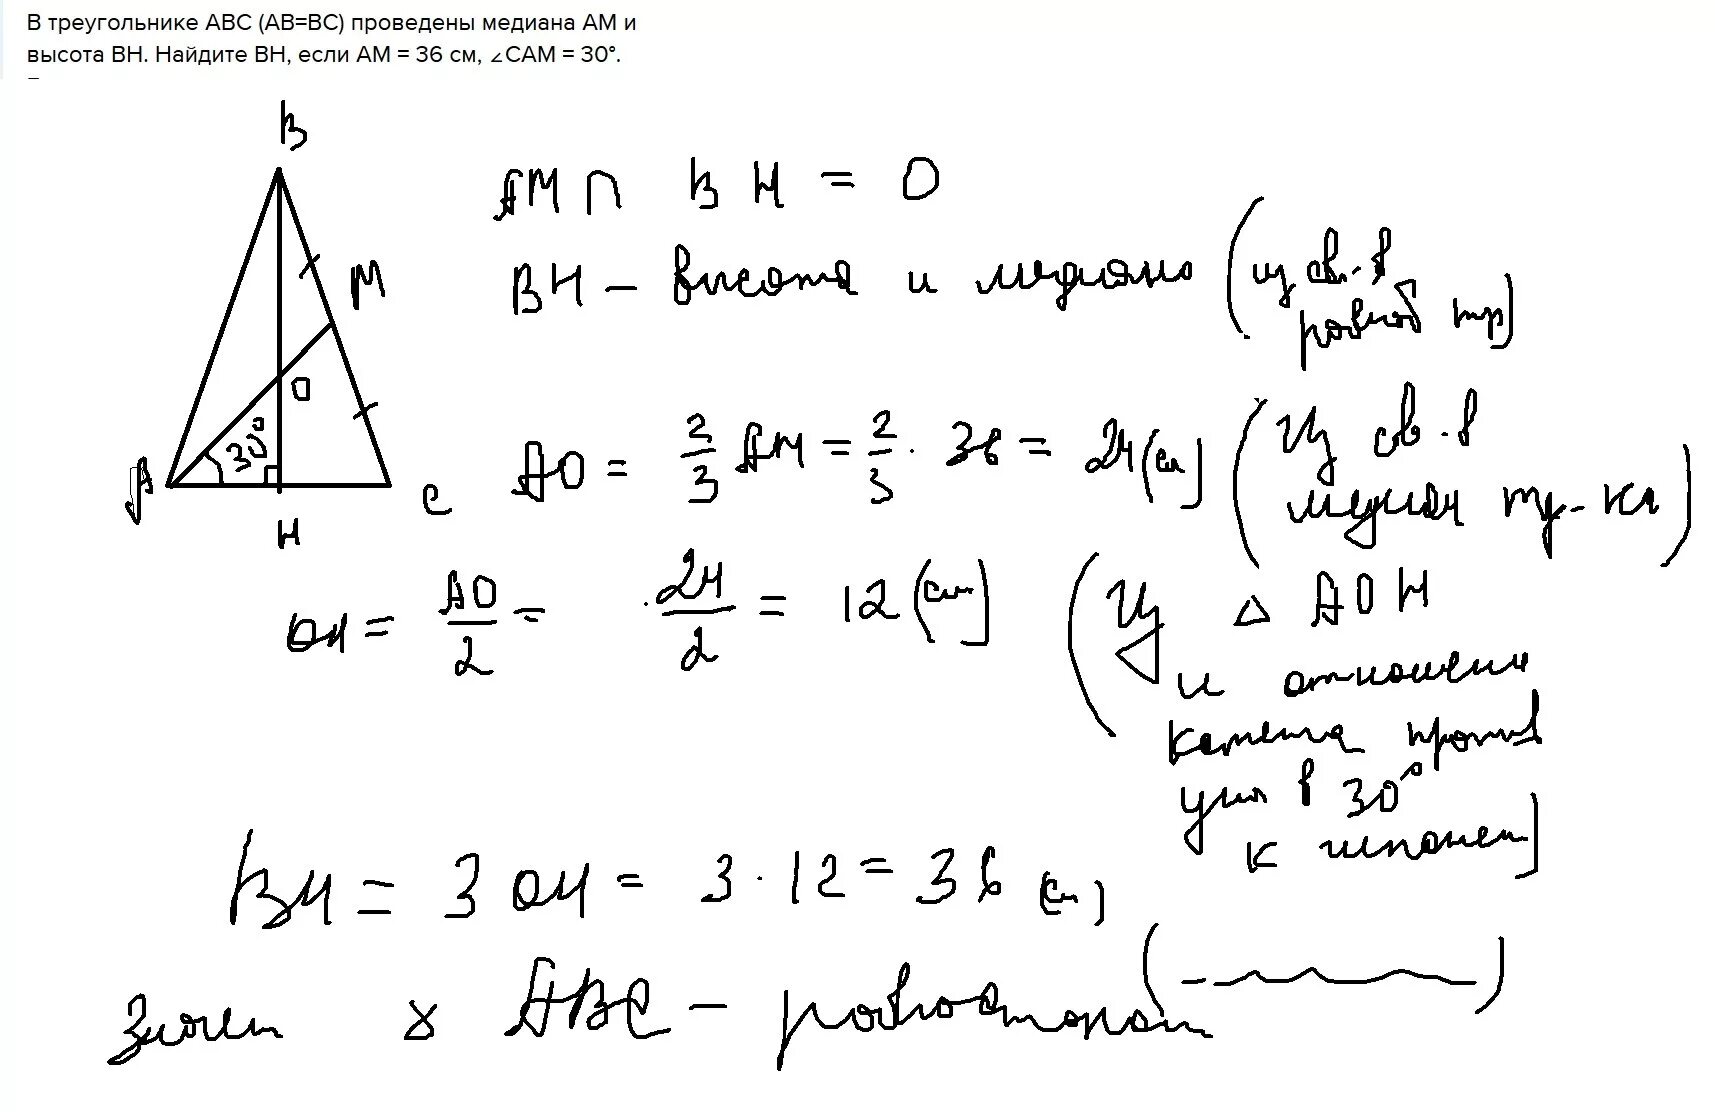 В треугольнике ABC (AB=BC) проведены медиана АМ и
высота ВН. Найдите ВН, если АМ = 36 см, ∠САМ = 30°.
В
М
О
30°
А
С
Н
АМ ∩ ВН = О
ВН – высота и медиана (из св-в
равноб тр)
АО = 2/3 АМ = 2/3 · 36 = 24 (см) (Из св-в
медиан тр-ка)
ОН = АО/2 = 24/2 = 12 (см) (Из △ АОН
и отношени
катета против
угла в 30°
к гипотен)
ВН = 3 ОН = 3 · 12 = 36 (см)
Значит АВС – равносторон (
)